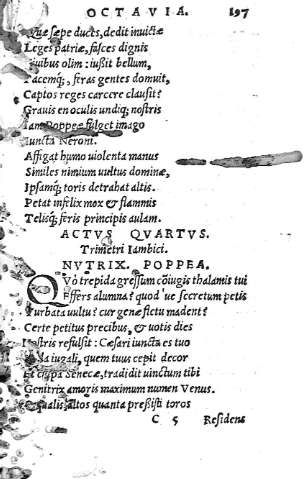 OCTAVIA. 197
Quæ sæpe duces, dedit inuictæ
Leges patriæ, fasces dignis
Ciuibus olim: iußit bellum,
Pacemq́;, feras gentes domuit,
Captos reges carcere clausit?
Grauis en oculis undiq; nostris
Iam Poppeæ fulget imago
Iuncta Neroni.
Affigat humo uiolenta manus
Similes nimium uultus dominæ,
Ipsamq́; toris detrahat altis.
Petat infelix mox & flammis
Telisq́; feris principis aulam.
ACTVS QVARTVS.
Trimetri Iambici.
NVTRIX. POPPEA.
QVo trepida greßum cõiugis thalamis tui
Effers alumna? quod ue secretum petis
Turbata uultu? cur genæ fletu madent?
Certe petitus precibus, & uotis dies
Nostris refulsit: Cæsari iuncta es tuo
iugali, quem tuus cepit decor
Senecæ, tradidit uinctum tibi
Genitrix amoris maximum numen Venus.
qualis altos quanta preßisti toros
C 5 Residens